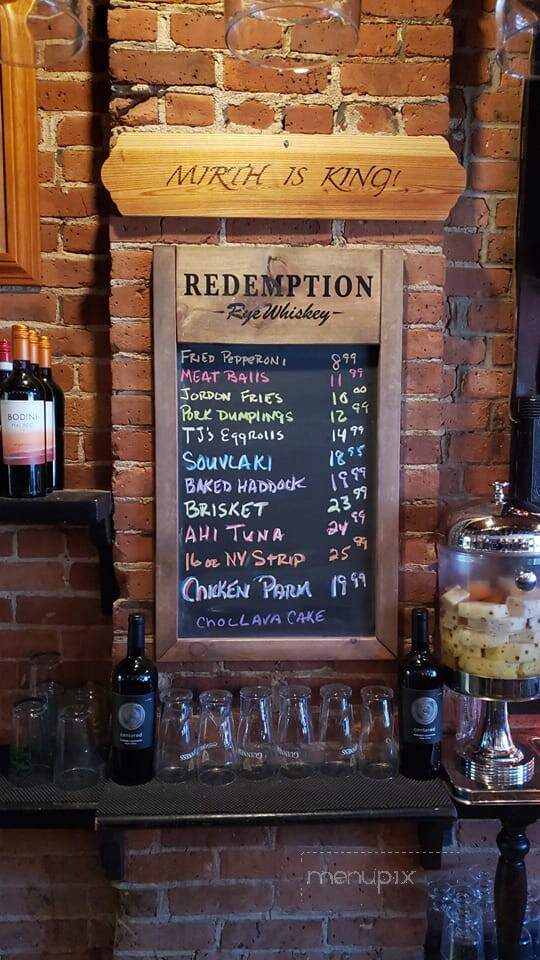 MIRTH IS KING!
REDEMPTION
-Rye Whiskey-
FRIED PEPPERONI 8 99
MEAT BALLS 11 99
JORDON FRIES 10 00
PORK DUMPLINGS 12 99
TJ'S EGGROLLS 14 99
SOUVLAKI 18 95
BAKED HADDOCK 19 99
BRISKET 23 99
AHI TUNA 24 99
16 oz NY STRIP 25 99
CHICKEN PARM 19 99
CHOCLAVA CAKE
BODINI
centered
centered
GUINNESS
GUINNESS
menupix